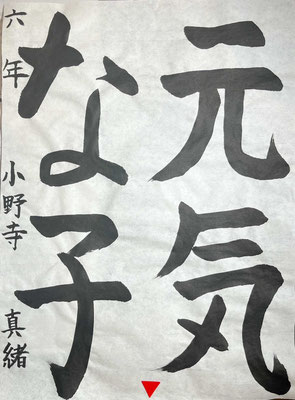 元気
な子
六年 小野寺 真緒